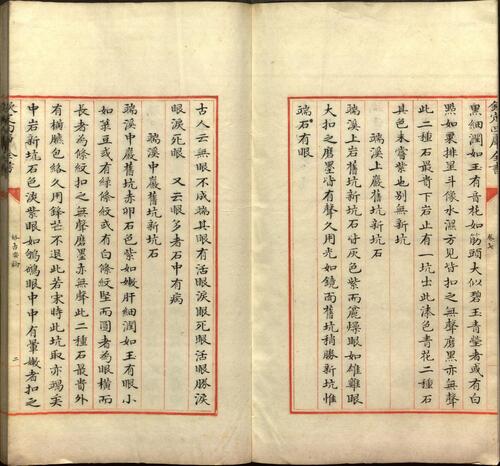 欽定四庫全書
卷七
黑細潤如玉有青花如筋頭大似碧玉青瑩者或有白
點如粟排星斗像水濕方見皆扣之無聲磨墨亦無聲
此二種石最貴下岩止有一坑出此漆色青花二種石
其色未嘗紫也别無新坑
端溪上巖舊坑新坑石
端溪上岩舊坑新坑石皆灰色紫而麄燥眼如雄雞眼
大扣之磨墨皆有聲久用光如鏡面舊坑稍勝新坑惟
端石有眼
古人云無眼不成端其眼有活眼淚眼死眼活眼勝淚
眼淚死眼 又云眼多者石中有病
端溪中巖舊坑新坑石
端溪中巖舊坑赤卯石色紫如嫩肝細潤如玉有眼小
如菉豆或有緑條紋或有白條紋竪而圓者為眼橫而
長者為條紋扣之無聲磨墨亦無聲此二種石最貴外
有橫臕包絡久用鋒芒不退此若宋時此坑取亦竭矣
中岩新坑石色淡紫眼如鴝鵒眼中中有暈嫩者扣之
格古要論
二